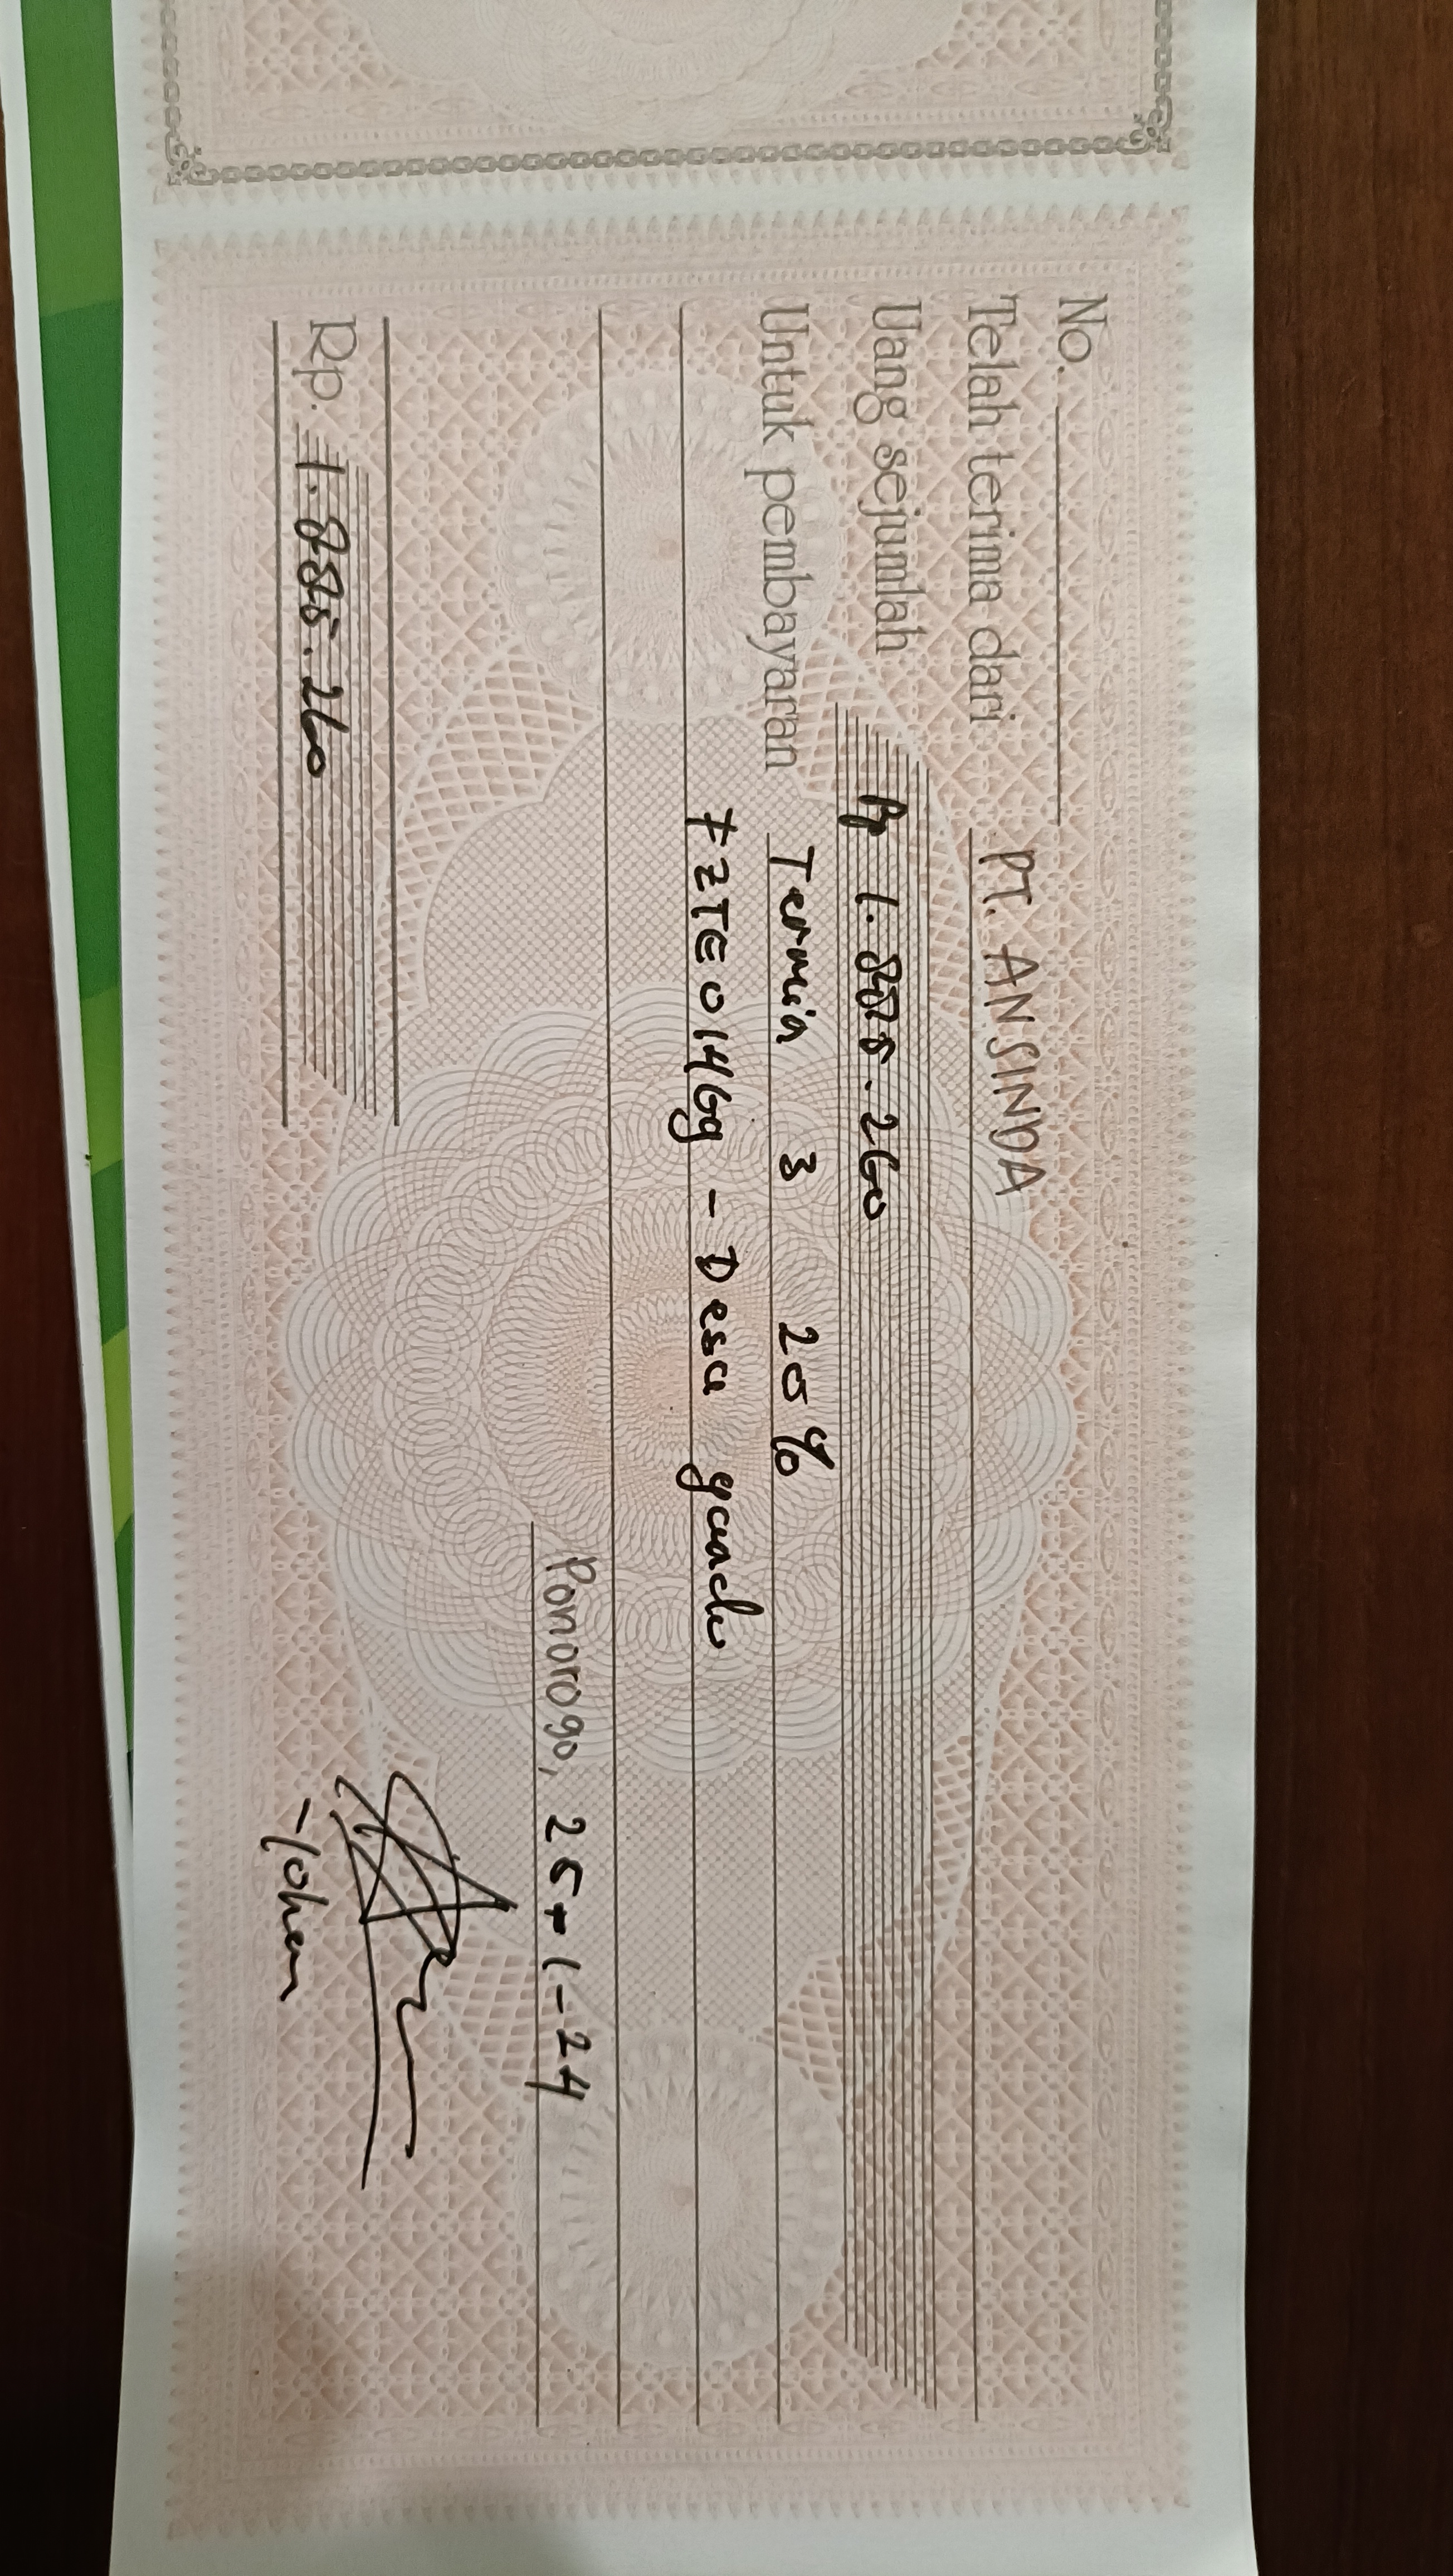 No.
Telah terima dari PT. ANSINDA
Uang sejumlah Rp 1.885.260
Untuk pembayaran Termin 3 20%
FZTE01469 - Desa
Ponorogo, 25-1-24
Rp. 1.885.260
Yohan